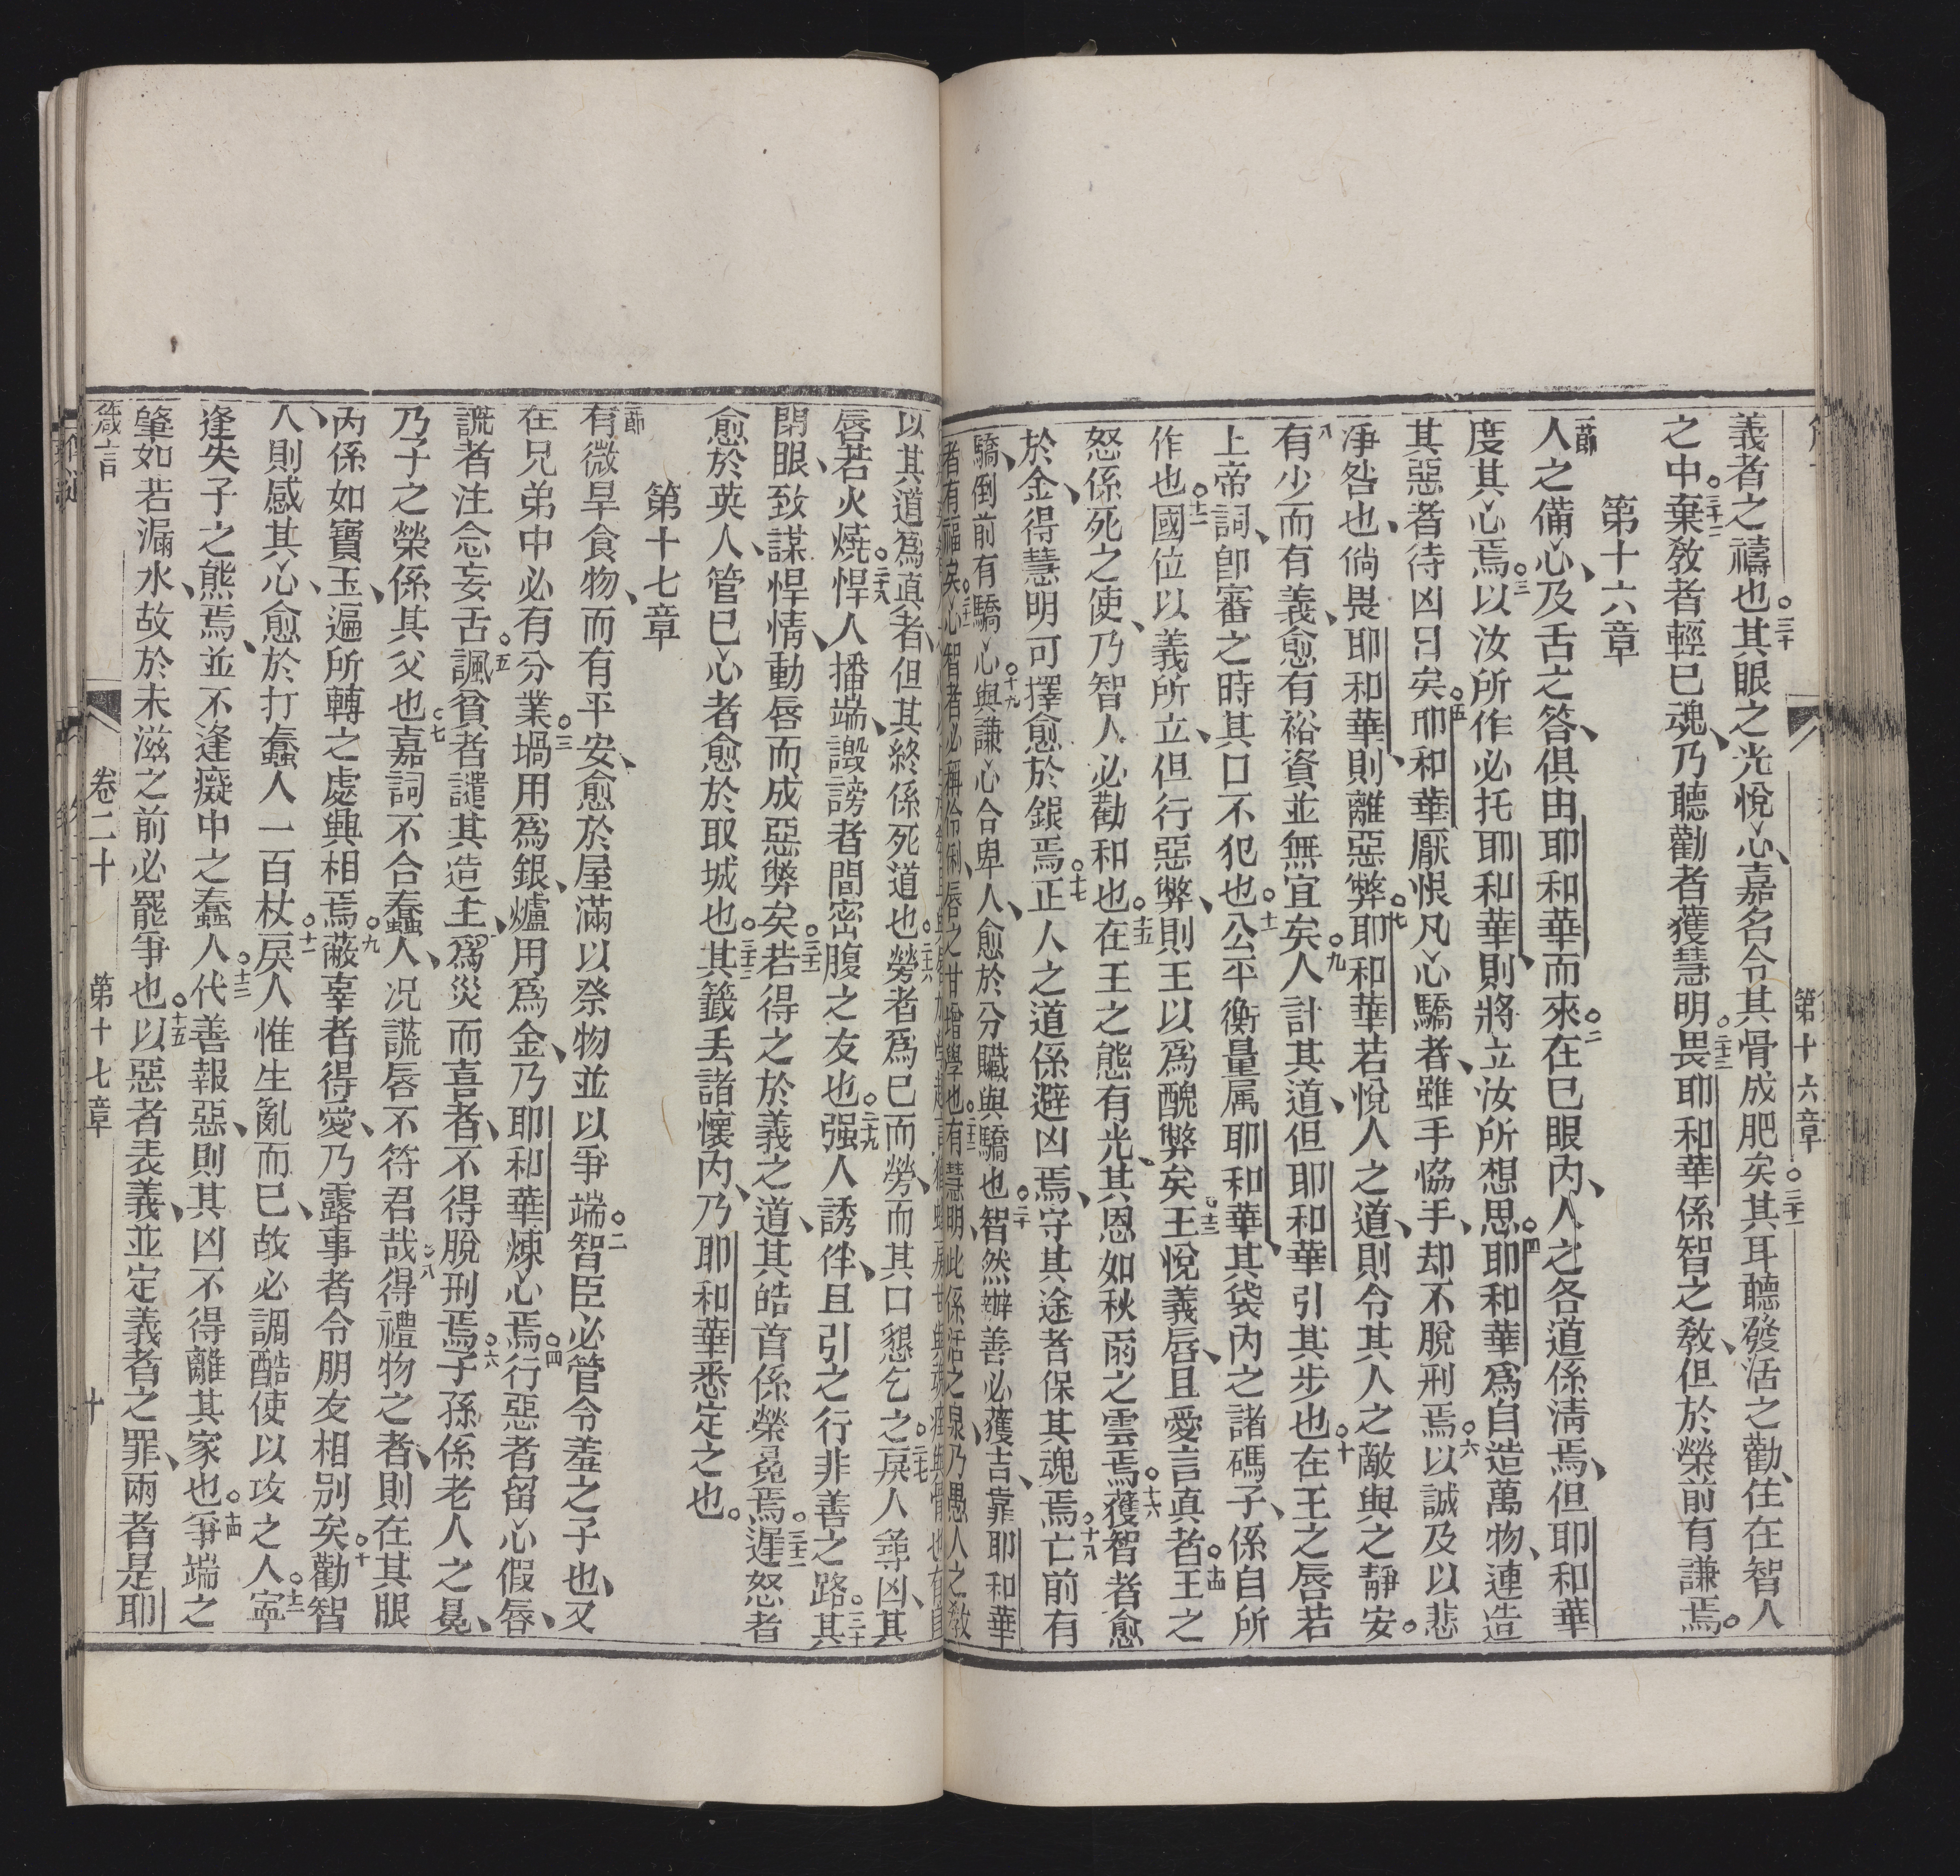 第十六章
義者之禱也。三十其眼之光悅心、嘉名令其骨成肥矣。三十一其耳聽發活之勸、住在智人
之中。三十二棄教者輕已魂、乃聽勸者獲慧明。三十三畏耶和華係智之教、但於榮前有謙焉。
第十六章
一節人之備心、及舌之答、俱由耶和華而來。二在已眼內、人之各道係淸焉、但耶和華
度其心焉。三以汝所作必托耶和華、則將立汝所想思。四耶和華爲自造萬物、連造
其惡者待凶日矣。五耶和華厭恨凡心驕者、雖手協手、却不脫刑焉。六以誠及以悲
淨咎也、倘畏耶和華、則離惡弊。七耶和華若悅人之道、則令其人之敵與之靜安。
八有少而有義、愈有裕資並無宜矣。九人計其道、但耶和華引其步也。十在王之唇若
上帝詞、卽審之時其口不犯也。十一公平衡量属耶和華、其袋內之諸碼子、係自所
作也。十二國位以義所立、但行惡弊、則王以爲醜弊矣。十三王悅義唇、且愛言真者。十四王之
怒係死之使、乃智人必勸和也。十五在王之態有光、其恩如秋雨之雲焉。十六獲智者愈
於金、得慧明可擇愈於銀焉。十七正人之道係避凶焉、守其途者保其魂焉。十八亡前有
驕、倒前有驕心。十九與謙心合卑人、愈於分贓與驕也。二十智然辦善必獲吉、靠耶和華
者有福矣。二十一心智者必稱伶俐、唇之甘增學也。二十二有慧明、此係活之泉、乃愚人之教
以其道爲真者、但其終係死道也。二十六勞者爲已而勞、而其口懇乞之。二十七戾人尋凶、其
唇若火燒。二十八悍人播端、譭謗者間密腹之友也。二十九强人誘伴、且引之行非善之路。三十其
閉眼、致謀悍情、動唇而成惡弊矣。三十一若得之於義之道、其皓首係榮冕焉。三十二遲怒者
愈於英人、管已心者愈於取城也。三十三其籤丢諸懷內、乃耶和華悉定之也。
第十七章
一節有微旱食物、而有平安、愈於屋滿以祭物並以爭端。二智臣必管令羞之子也、又
在兄弟中必有分業。三堝用爲銀、爐用爲金、乃耶和華煉心焉。四行惡者留心假唇、
謊者注念妄舌。五諷貧者譴其造主、爲災而喜者、不得脫刑焉。六子孫係老人之冕、
乃子之榮係其父也。七嘉詞不合蠢人、况謊唇不符君哉。八得禮物之者、則在其眼
內係如寶玉、遍所轉之處興相焉。九蔽辜者得愛、乃露事者令朋友相別矣。十勸智
人、則感其心、愈於打蠢人一百杖。十一戾人惟生亂而已、故必調酷使以攻之人。十二寧
逢失子之熊焉、並不逢癡中之蠢人。十三代善報惡、則其凶不得離其家也。十四爭端之
肇如若漏水、故於未滋之前必罷爭也。十五以惡者表義、並定義者之罪、兩者是耶
箴言
卷二十
第十七章
十